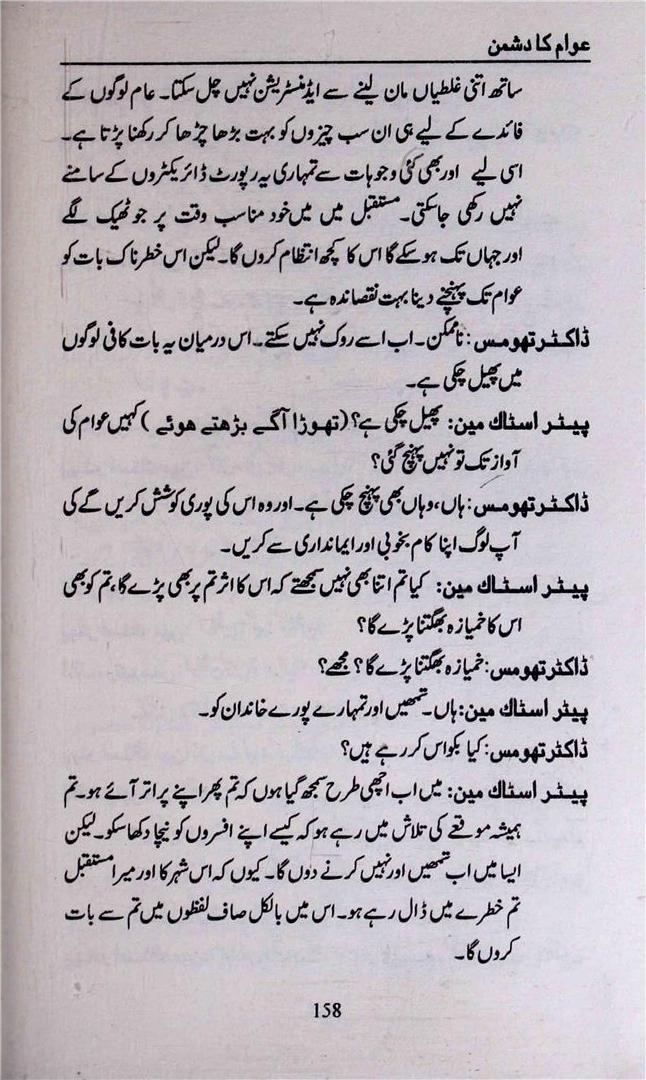 عوام کا دشمن
ساتھ اتنی غلطیاں مان لینے سے ایڈمنسٹریشن نہیں چل سکتا۔ عام لوگوں کے
فائدے کے لیے ہی ان سب چیزوں کو بہت بڑھا چڑھا کر رکھنا پڑتا ہے۔
اسی لیے اور بھی کئی وجوہات سے تمہاری یہ رپورٹ ڈائریکٹروں کے سامنے
نہیں رکھی جاسکتی۔ مستقبل میں میں خود مناسب وقت پر جو ٹھیک لگے
اور جہاں تک ہوسکے گا اس کا کچھ انتظام کروں گا۔ لیکن اس خطرناک بات کو
عوام تک پہنچنے دینا بہت نقصاندہ ہے۔
ڈاکٹر تھومس: ناممکن۔ اب اسے روک نہیں سکتے۔ اس درمیان یہ بات کافی لوگوں
میں پھیل چکی ہے۔
پیٹر اسٹاک مین: پھیل چکی ہے؟ (تھوڑا آگے بڑھتے ھوئے) کہیں عوام کی
آواز تک تو نہیں پہنچ گئی؟
ڈاکٹر تھومس: ہاں، وہاں بھی پہنچ چکی ہے۔ اور وہ اس کی پوری کوشش کریں گے کی
آپ لوگ اپنا کام بخوبی اور ایمانداری سے کریں۔
پیٹر اسٹاک مین: کیا تم اتنا بھی نہیں سمجھتے کہ اس کا اثر تم پر بھی پڑے گا، تم کو بھی
اس کا خمیازہ بھگتنا پڑے گا؟
ڈاکٹر تھومس: خمیازہ بھگتنا پڑے گا؟ مجھے؟
پیٹر اسٹاک مین: ہاں۔ تمھیں اور تمہارے پورے خاندان کو۔
ڈاکٹر تھومس: کیا بکواس کر رہے ہیں؟
پیٹر اسٹاک مین: میں اب اچھی طرح سمجھ گیا ہوں کہ تم پھر اپنے پر اتر آئے ہو۔ تم
ہمیشہ موقعے کی تلاش میں رہے ہو کہ کیسے اپنے افسروں کو نیچا دکھا سکو۔ لیکن
ایسا میں اب تمھیں اور نہیں کرنے دوں گا۔ کیوں کہ اس شہر کا اور میرا مستقبل
تم خطرے میں ڈال رہے ہو۔ اس میں بالکل صاف لفظوں میں تم سے بات
کروں گا۔
158